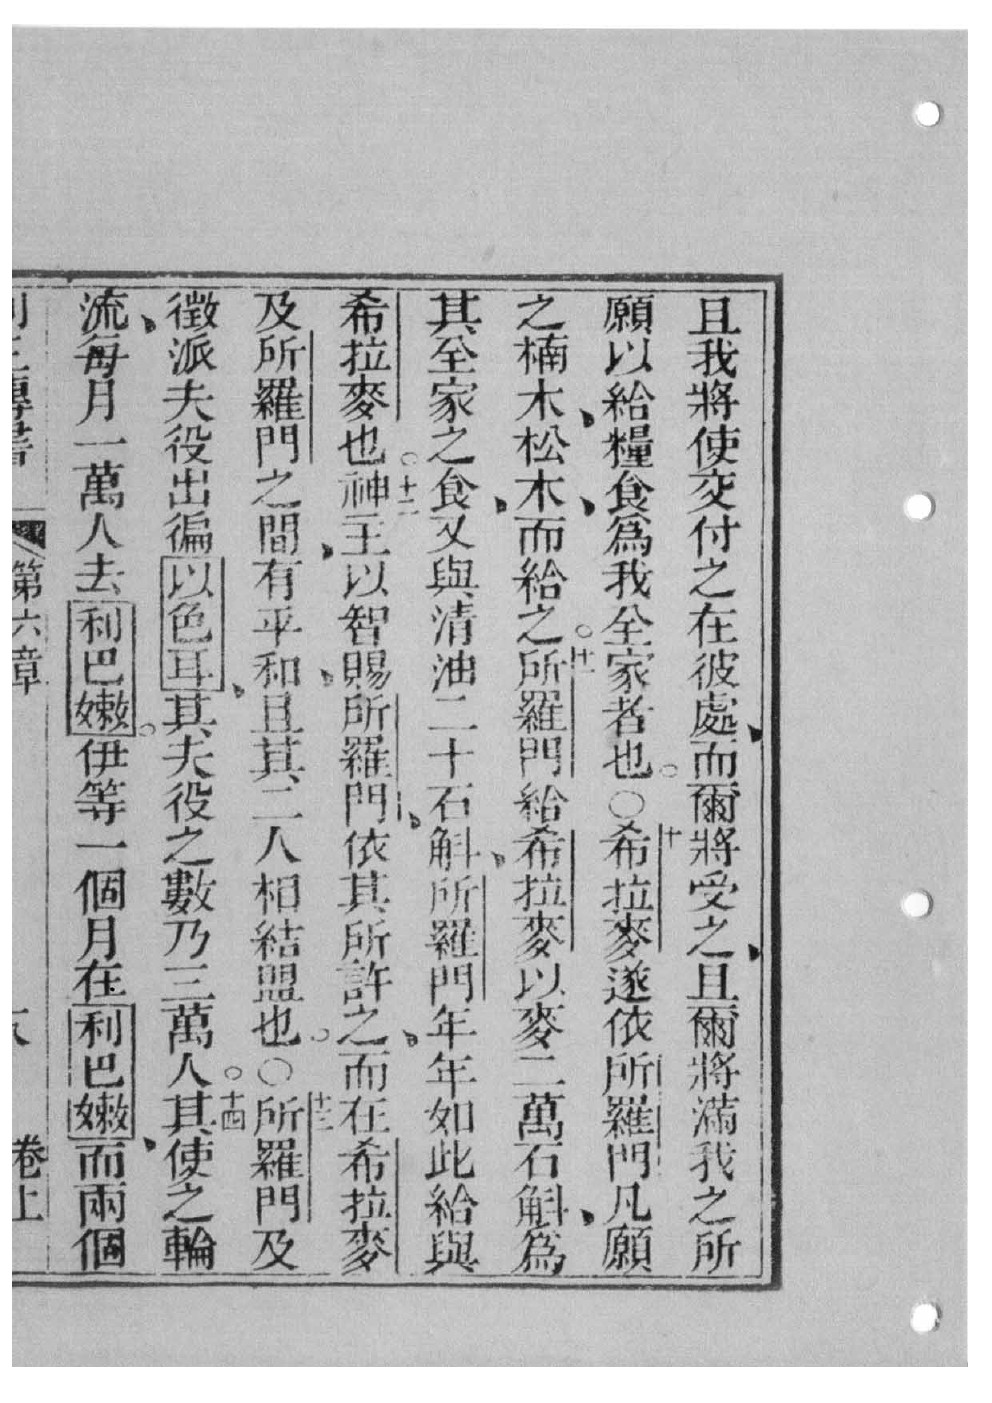 且我將使交付之在彼處、而爾將受之、且爾將滿我之所
願以給糧食爲我全家者也。〇十希拉麥遂依所羅門凡願
之楠木、松木、而給之。十一所羅門給希拉麥以麥二萬石斛、爲
其全家之食、又與清油二十石斛、所羅門年年如此給與
希拉麥也。十二神主以智賜所羅門、依其所許之、而在希拉麥
及所羅門之間、有平和、且其二人相結盟也。〇十三所羅門及
徵派夫役出徧以色耳、其夫役之數乃三萬人。十四其使之輪
流、每月一萬人去利巴嫩。伊等一個月在利巴嫩、而兩個
列王傳書 第六章 卷上